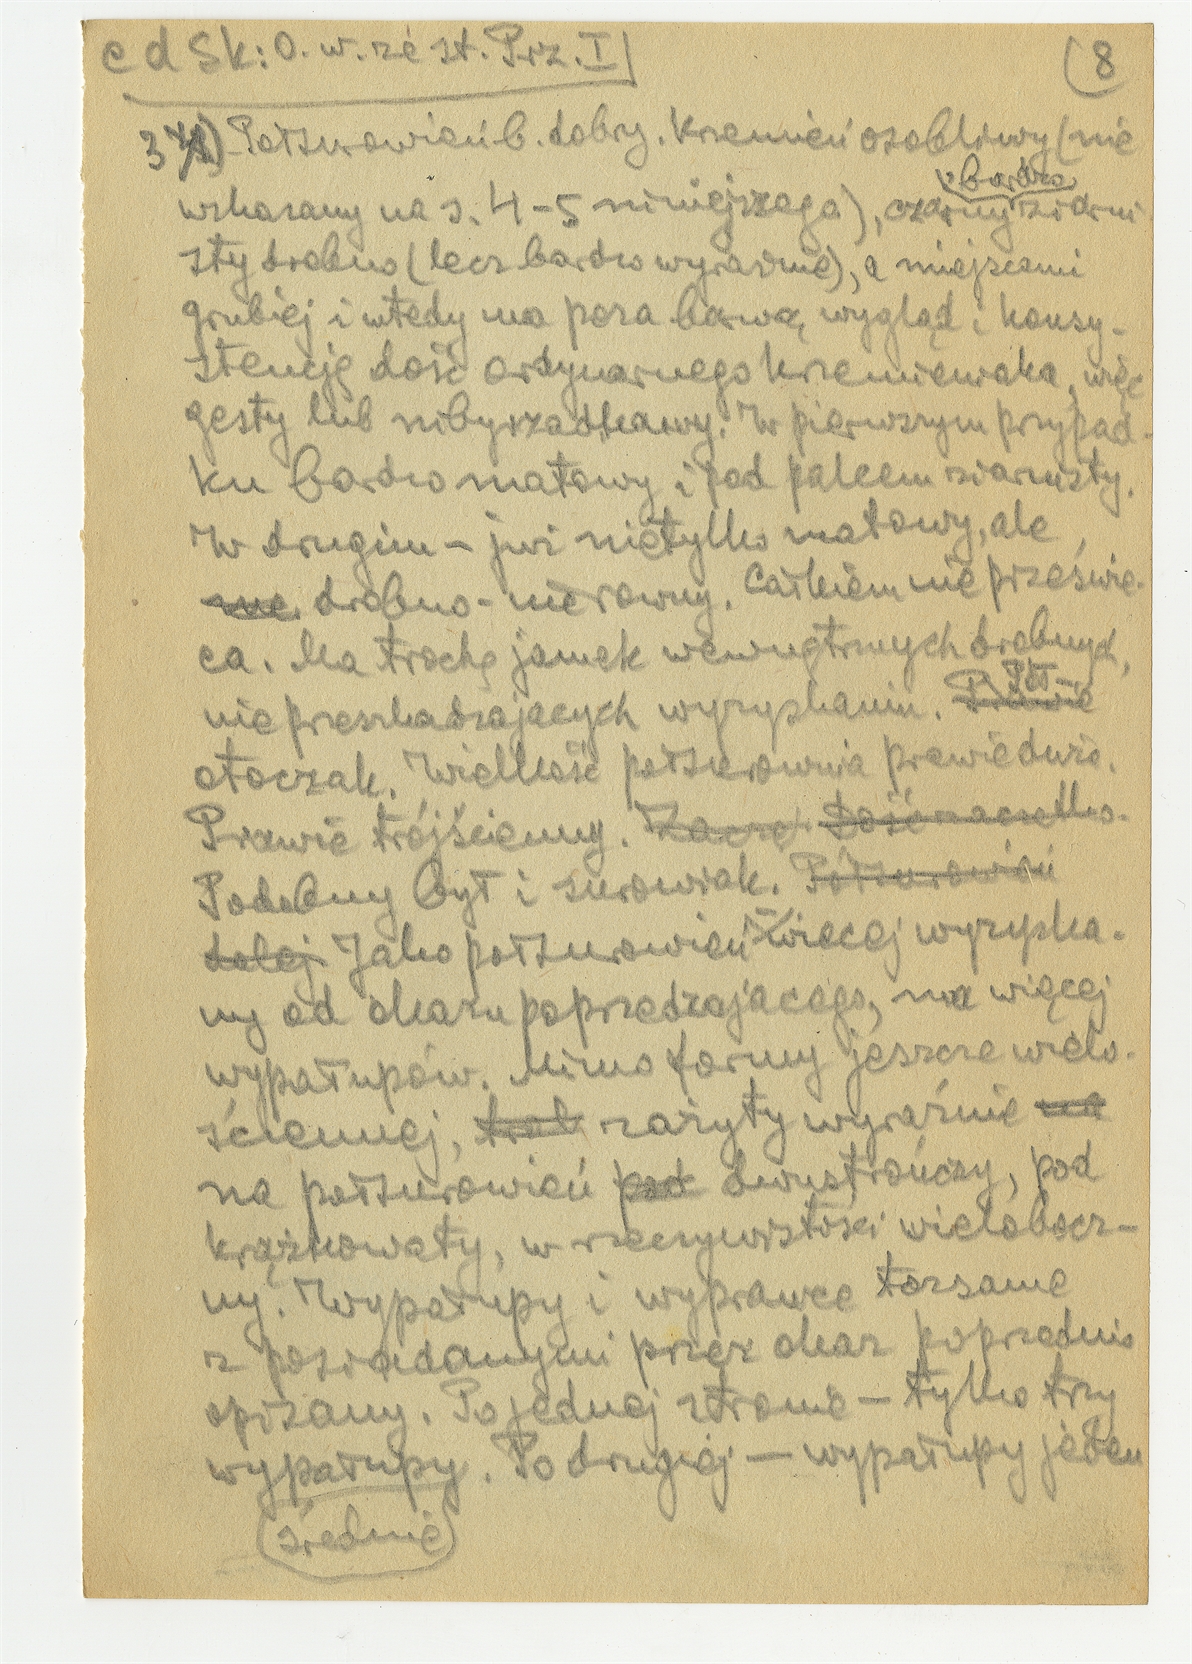 c d Sk: O. w. ze st. Prz. I
(8
37) Półsurowień b. dobry. Krzemień osobliwy (nie
wskazany na s. 4-5 niniejszego), czarny, bardzo ziarni
sty drobno (lecz bardzo wyraźnie), a miejscami
grubiej i wtedy ma poza barwą, wygląd i konsy-
stencję dość ordynarnego krzemieniaka, więc
gęsty lub nibyrzadkawy. W pierwszym przypad-
ku bardzo matowy i pod palcem ziarnisty.
W drugim – już nietylko matowy, ale
drobno-nierowny. Całkiem nie prześwie-
ca. Ma trochę jamek wewnętrznych drobnych,
nie przeszkadzających wyzyskaniu. Prawie Pół-
otoczak. Wielkość półsurownia prawie duża.
Prawie trójścienny. Zaczę Dość naczelko-
Podobny był i surowiak. Półsurowień
dalej Jako półsurowień więcej wyzyska-
ny od okazu poprzedzającego, ma więcej
wypałupów. Mimo formy jeszcze wielo-
ściennej, zażyty wyraźnie na
na półsurowień pod dwustrończy, pod
krążkowaty, w rzeczywistości wielobocz-
ny. Wypałupy i wyprawce tozsame
z posiadanymi przez okaz poprzednio
opisany. Po jednej stronie – tylko trzy
wypałupy. Po drugiej – wypałupy jeden
(średnie)